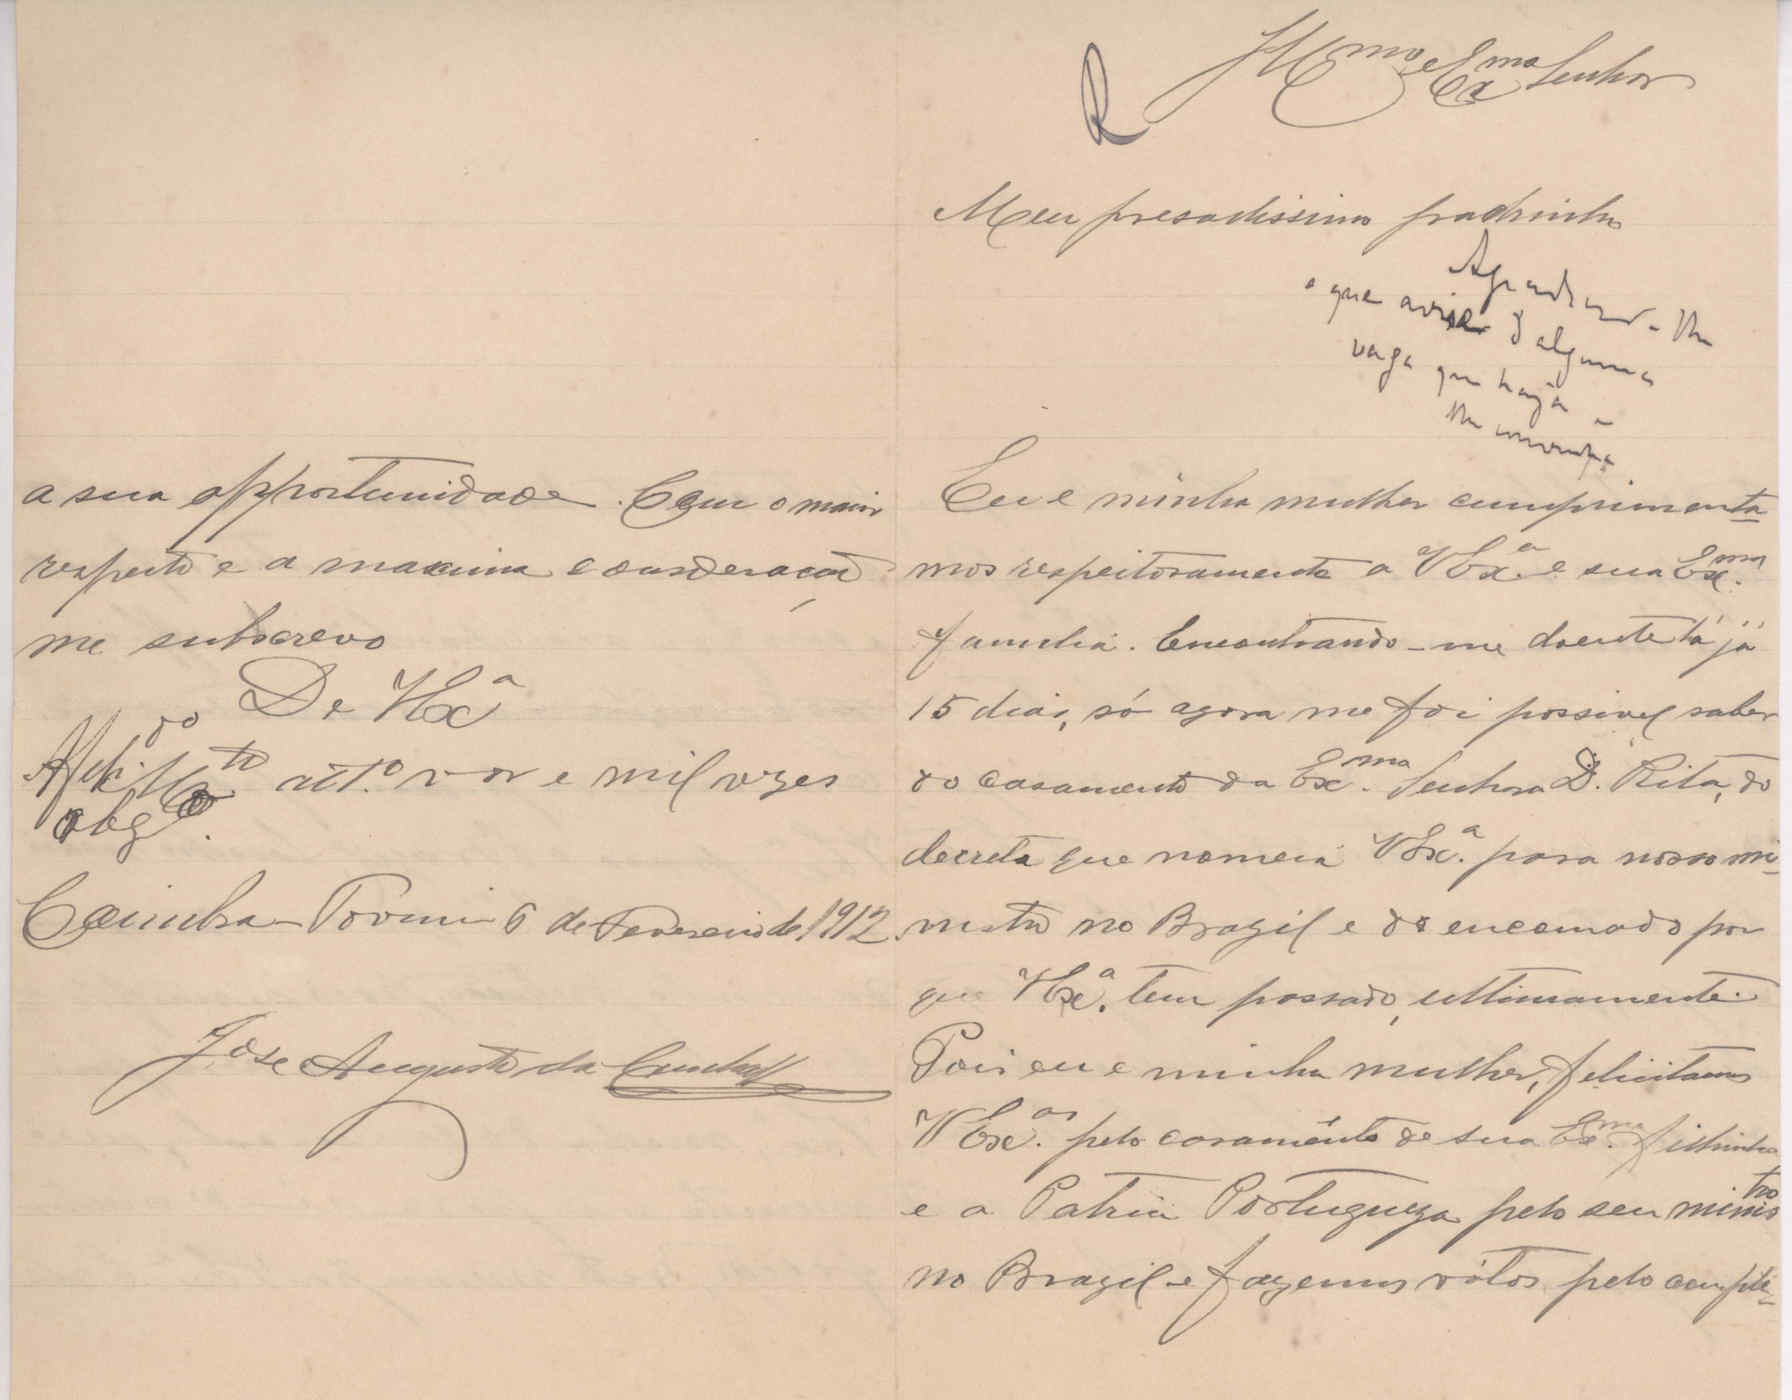 R
Ill.mo e Ex.mo Senhor
Meu presadissimo padrinho
Agradecer-lhe
o que avise d'alguma
vaga que haja
lhe convenha
Eu e minha mulher cumprimenta-
mos respeitosamente a V Ex.a e sua Ex.ma
familia. Encontrando-me doente há já
15 dias, só agora me foi possivel saber
do casamento da Ex.ma Senhora D. Rita, do
decreto que nomeia V Ex.a para nosso mi-
nistro no Brazil e do encomodo por
que V Ex.a tem passado, ultimamente.
Pois eu e minha mulher, felicitamos
V Ex.as pelo casamento de sua Ex.ma filhinha
e a Patria Portugueza pelo seu ministro
no Brazil e fazemos vótos pelo comple-
a sua opportunidade. Com o maior
respeito e a maxima consideração
me subscrevo
De V Ex.a
Afilh.do M.to att.o v.or e mil vezes
obg.do
Coimbra - 6 de Fevereiro de 1912
José Augusto da Cunha